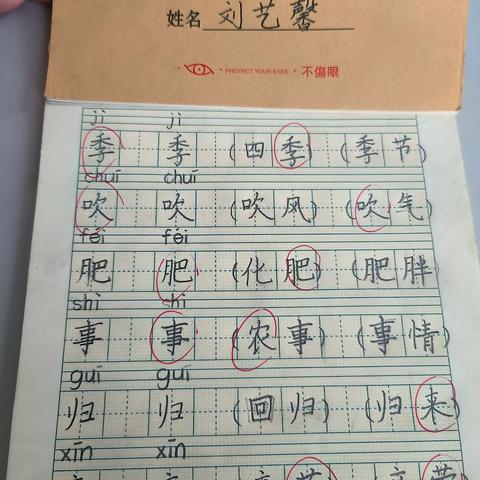 姓名 刘艺馨
PROTECT YOUR EYES · 不傷眼
jì jì
季 季 (四季) (季节)
chuī chuī
吹 吹 (吹风) (吹气)
féi féi
肥 肥 (化肥) (肥胖)
shì shì
事 事 (农事) (事情)
guī guī
归 归 (回归) (归来)
xīn xīn